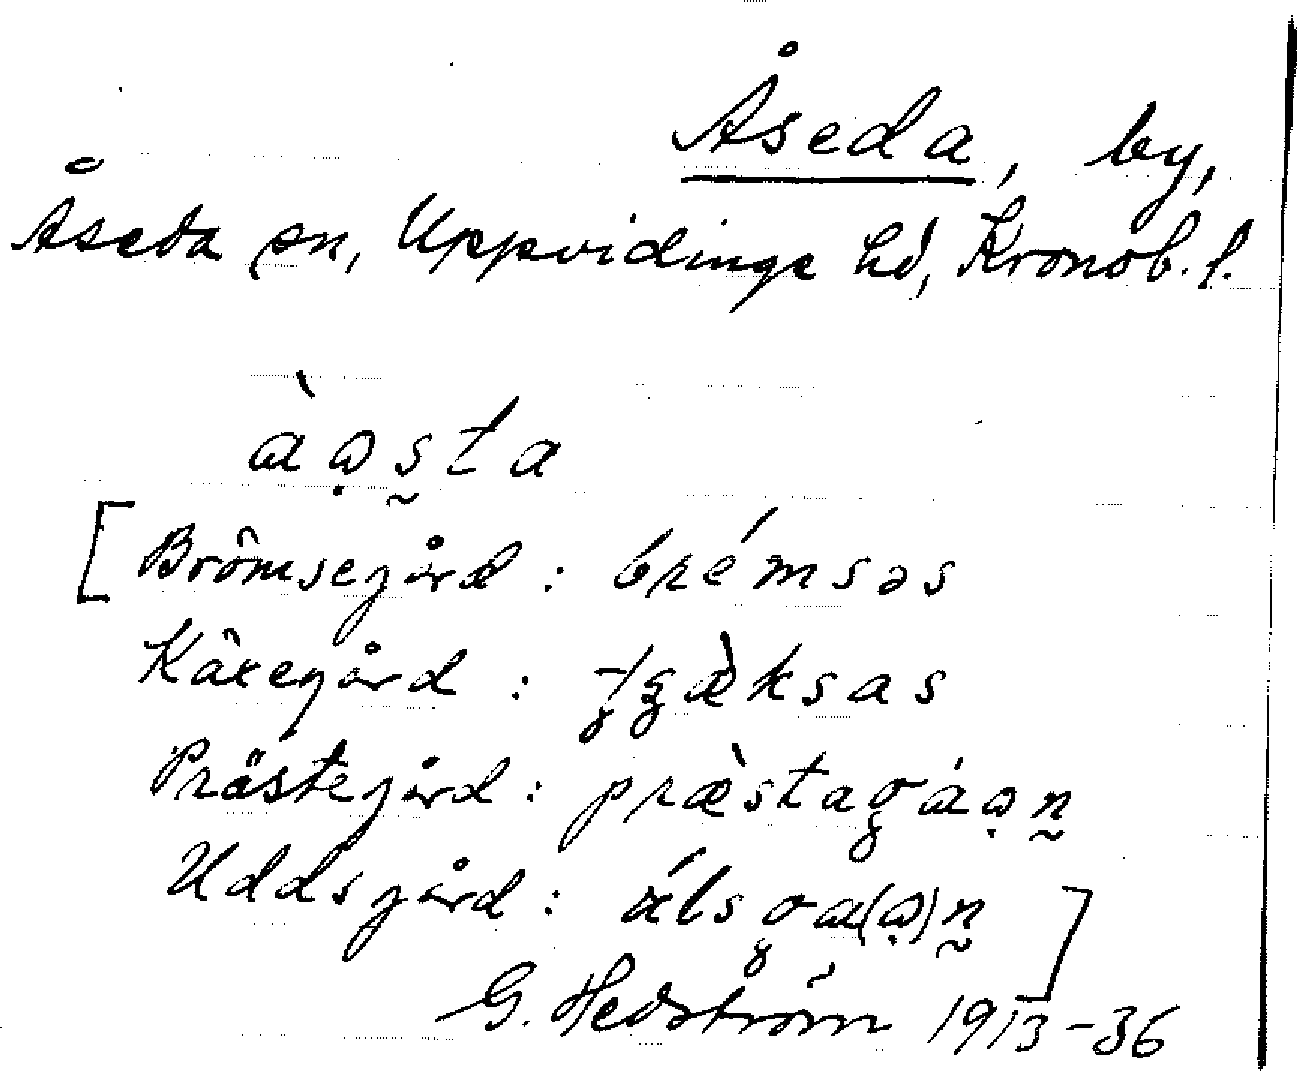 Åseda, by,
Åseda sn, Uppvidinge hd, Kronob. l.
àạs̰ta
[Brömsegård : brémsəs
Käxegård : gæ̀ksas
Prästegård : præ̀stagáə̣n̰
Uddsgård : álsga(ə̣)n̰]
G. Hedström 1913-36